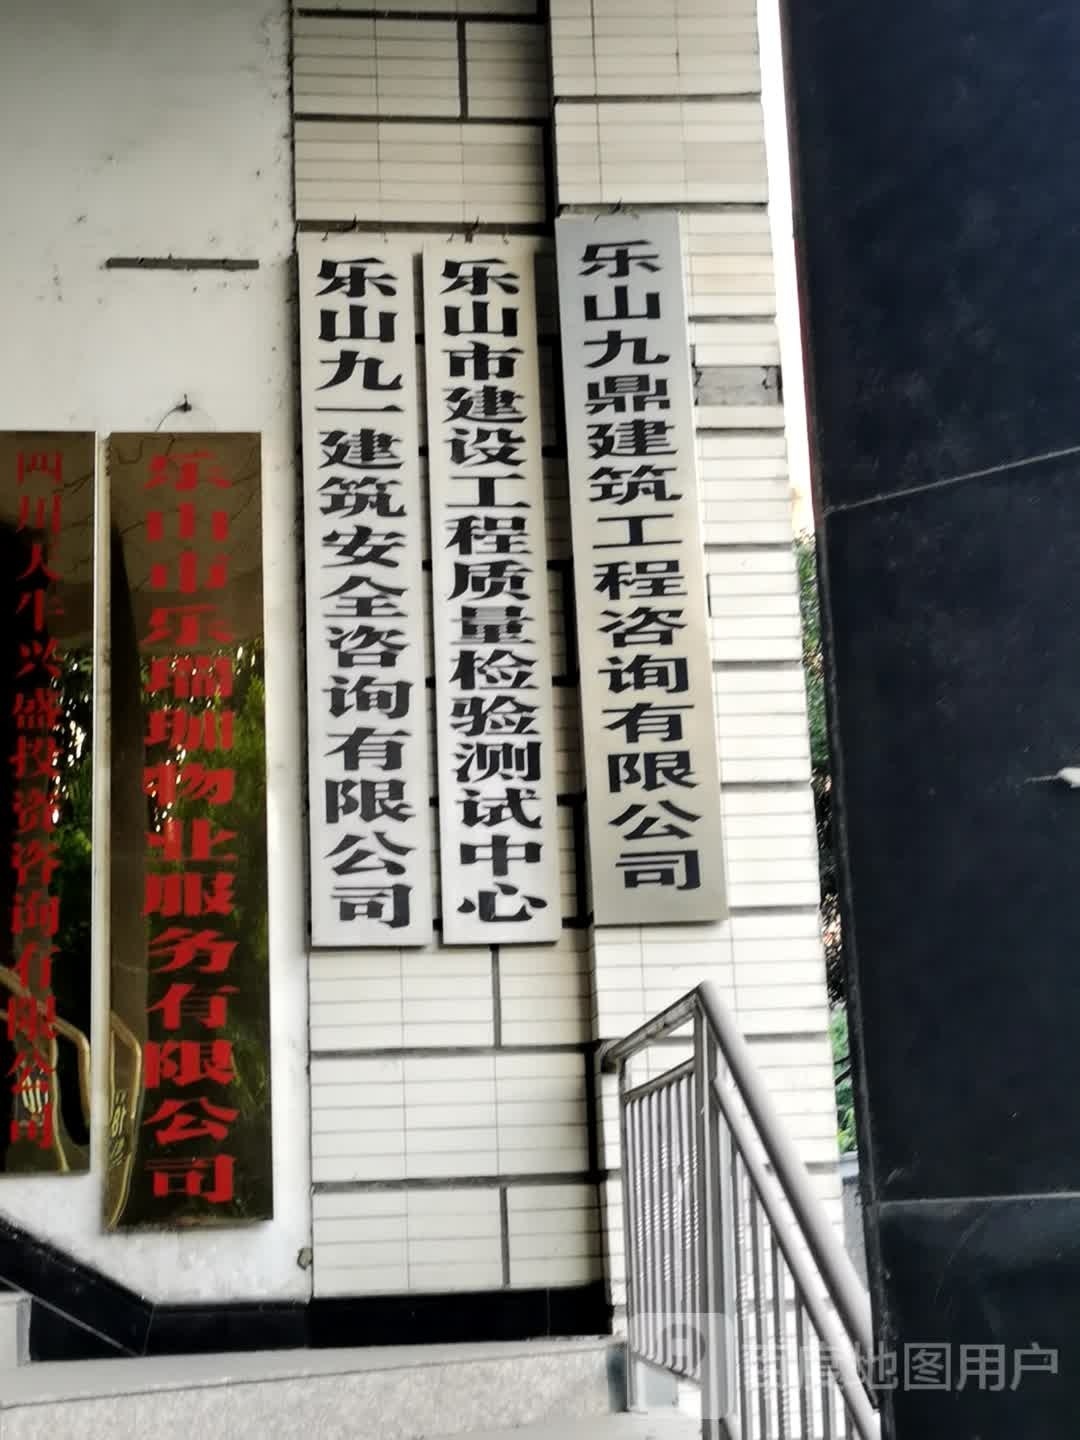 四川大牛兴盛投资咨询有限公司
乐山市乐瑞珈物业服务有限公司
乐山九一建筑安全咨询有限公司
乐山市建设工程质量检验测试中心
乐山九鼎建筑工程咨询有限公司
地图用户